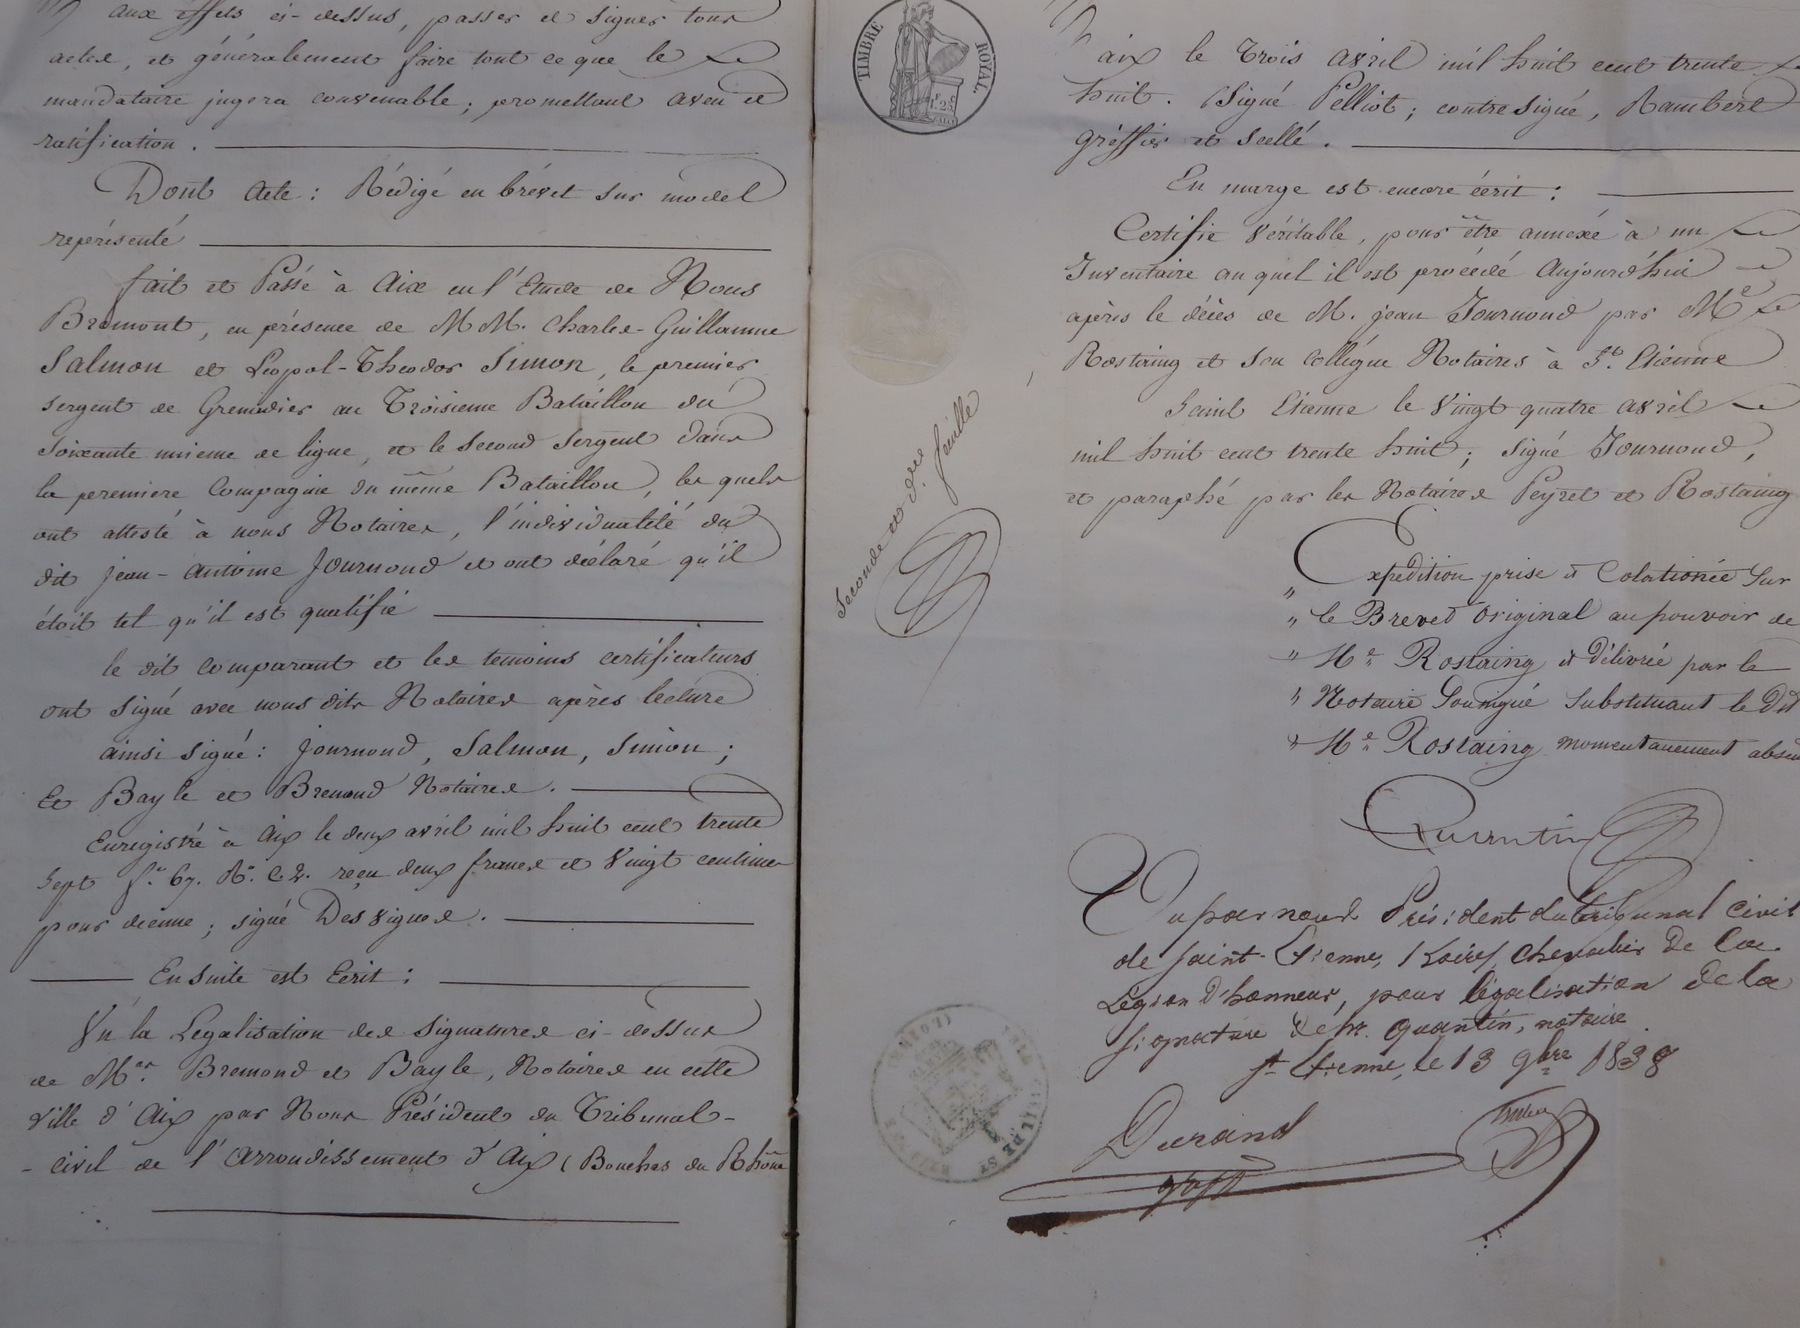 aux effets ci-dessus, passer et signer tous
actes, et généralement faire tout ce que le
mandataire jugera convenable; promettant aveu et
ratification.
Dont acte: Rédigé en brévet sur model
représenté
fait et Passé à Aix en l'Etude de Nous
Bremont, en présence de MM. Charles-Guillaume
Salmon et Léopol-Théodor Simon, le premier
sergent de Grenadier au Troisieme Bataillon du
soixante unieme de ligne, et le second sergent dans
la premiere Compagnie du même Bataillon, les quels
ont attesté à nous Notaires, l'individualité du
dit jean-antoine Journoud et ont déclaré qu'il
étoit tel qu'il est qualifié
le dit comparant et les temoins certificateurs
ont signé avec nous dits Notaires après lecture
ainsi signé: journoud, Salmon, Simon;
Et Bayle et Bremond Notaires.
Enregistré à Aix le deux avril mil huit cent trente
sept f.° 67. R.° C. 2. reçu deux francs et vingt centimes
pour dixme; signé Desvignes.
Ensuite est Ecrit:
Vu la Legalisation des signatures ci-dessus
de Mes. Bremond et Bayle, Notaires en cette
ville d'Aix par Nous Président du Tribunal-
-civil de l'arrondissement d'Aix (Bouches du Rhône
TIMBRE ROYAL.
1f 25c
Seconde et d.re feuille
aix le trois avril mil huit cent trente
huit. Signé Pelliot; contre signé, Rambert
gréffier et scellé.
En marge est encore écrit:
Certifie Véritable, pour être annexé à un
Inventaire au quel il est procédé Aujourd'hui
après le décès de M. jean Journoud par Me
Rostaing et son collégue Notaires à St. Etienne
Saint Etienne le vingt quatre avril
mil huit cent trente huit; signé Journoud,
et paraphé par les Notaires Peyret et Rostaing
Expédition prise et Colationée Sur
„ le Breved original au pouvoir de
„ Me. Rostaing et Délivrée par le
„ Notaire Soussigné Substituant le Dit
„ Me. Rostaing momentanement
Quantin
Vu par nous Président du tribunal civil
de Saint-Etienne, (Loire) chevalier De la
Légion d'honneur, pour légalisation de la
signature de Me. Quantin, notaire.
St Etienne, le 13 9bre 1838
Durand
greff